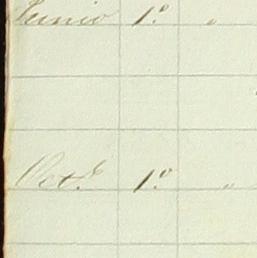 Junio 1º "
Octe 1º " "